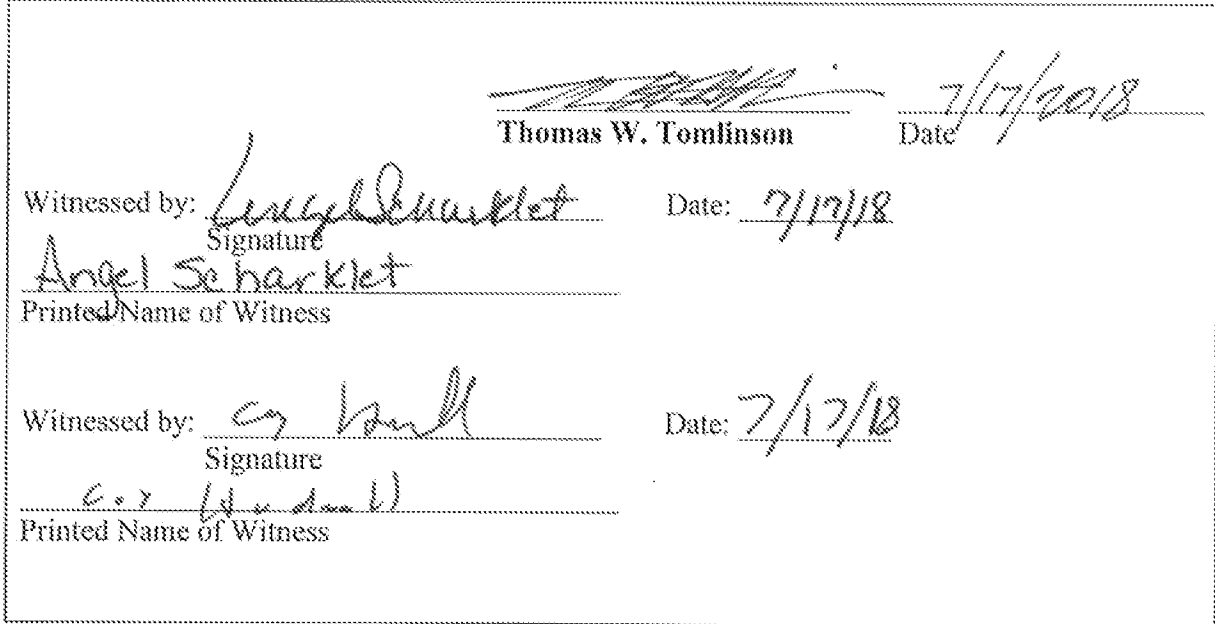 7/17/2018
Thomas W. Tomlinson Date
Witnessed by: Date: 7/17/18
Signature
Angel Scharklet
Printed Name of Witness
Witnessed by: Date: 7/17/18
Signature
Printed Name of Witness